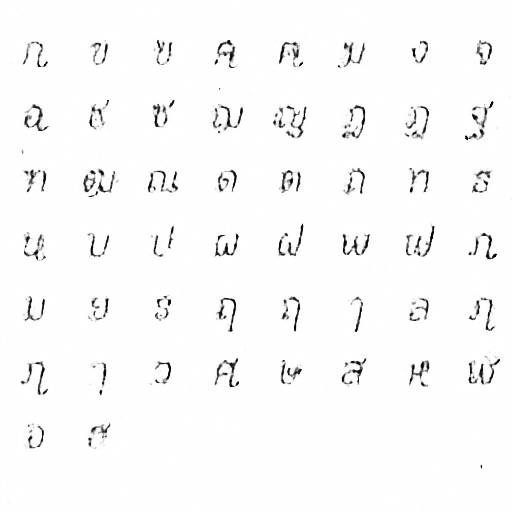 ก ข ฃ ค ฅ ฆ ง จ
ฉ ช ซ ฌ ญ ฎ ฏ ฐ
ฑ ฒ ณ ด ต ถ ท ธ
น บ ป ผ ฝ พ ฟ ภ
ม ย ร ฤ ฤ ๅ ล ฦ
ฦ ว ศ ษ ส ห ฬ
อ ฮ